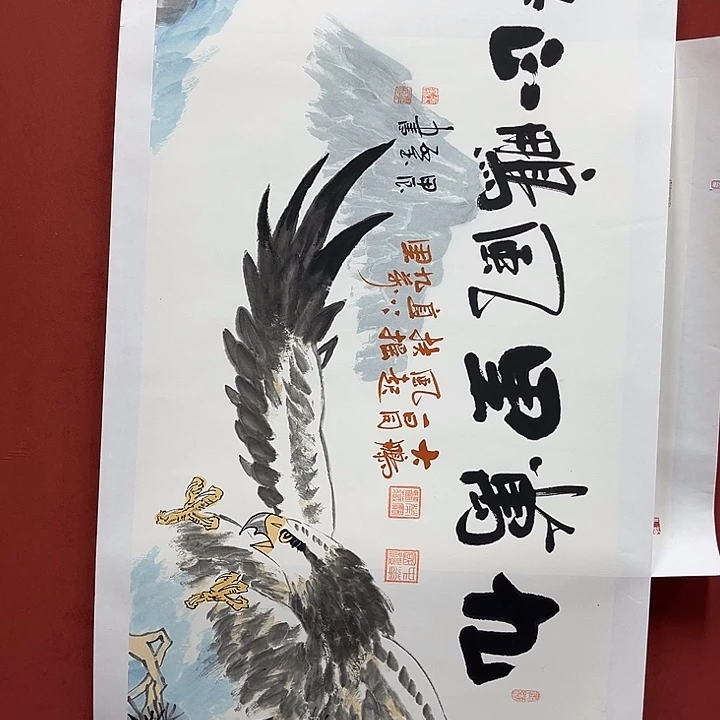 九萬里風鵬正
大鵬一日同風起
扶搖直上九萬里
甲辰
書